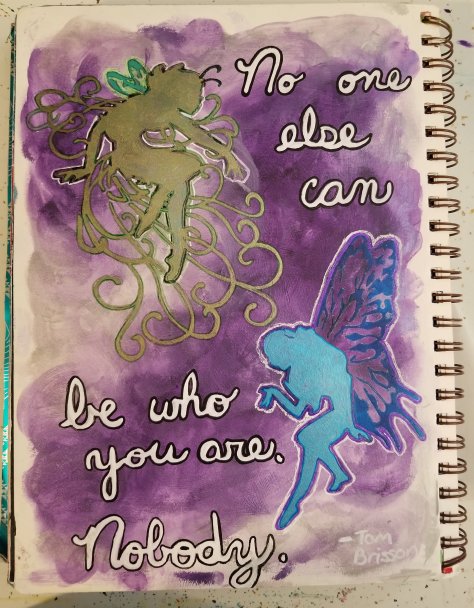 No one
else
can
be who
you are.
Nobody.
- Tom
Brisson